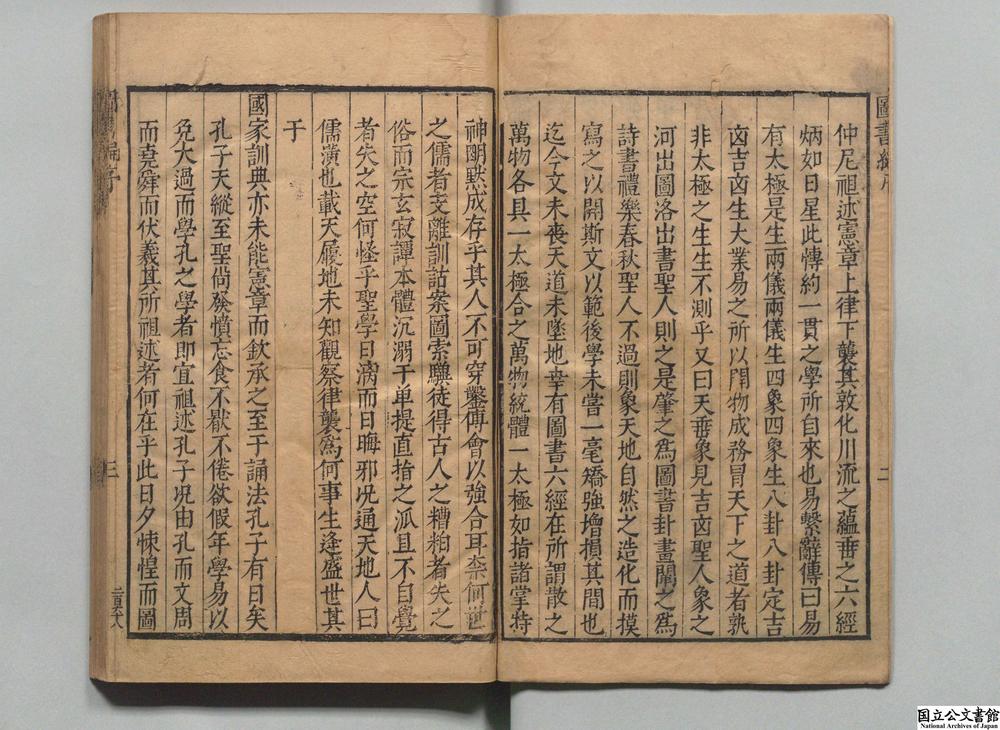 仲尼祖述憲章上律下襲其敦化川流之蘊垂之六經
炳如日星此博約一貫之學所自來也易繫辭傳曰易
有太極是生兩儀兩儀生四象四象生八卦八卦定吉
凶吉凶生大業易之所以開物成務冒天下之道者孰
非太極之生生不測乎又曰天垂象見吉凶聖人象之
河出圖洛出書聖人則之是肇之爲圖書卦畫闡之爲
詩書禮樂春秋聖人不過則象天地自然之造化而摸
寫之以開斯文以範後學未嘗一毫矯強增損其間也
迄今文未喪天道未墜地幸有圖書六經在所謂散之
萬物各具一太極合之萬物統體一太極如指諸掌特
神明默成存乎其人不可穿鑿傅會以強合耳柰何世
之儒者支離訓詁案圖索驥徒得古人之糟粕者失之
俗而宗玄寂譚本體沉溺于单提直指之派且不自覺
者失之空何怪乎聖學日漓而日晦邪况通天地人曰
儒潢也載天履地未知觀察律襲爲何事生逢盛世其
于
國家訓典亦未能憲章而欽承之至于誦法孔子有日矣
孔子天縱至聖尙發憤忘食不厭不倦欲假年學易以
免大過而學孔之學者即宜祖述孔子况由孔而文周
而堯舜而伏羲其所祖述者何在乎此日夕悚惶而圖
三
国立公文書館
National Archives of Japan